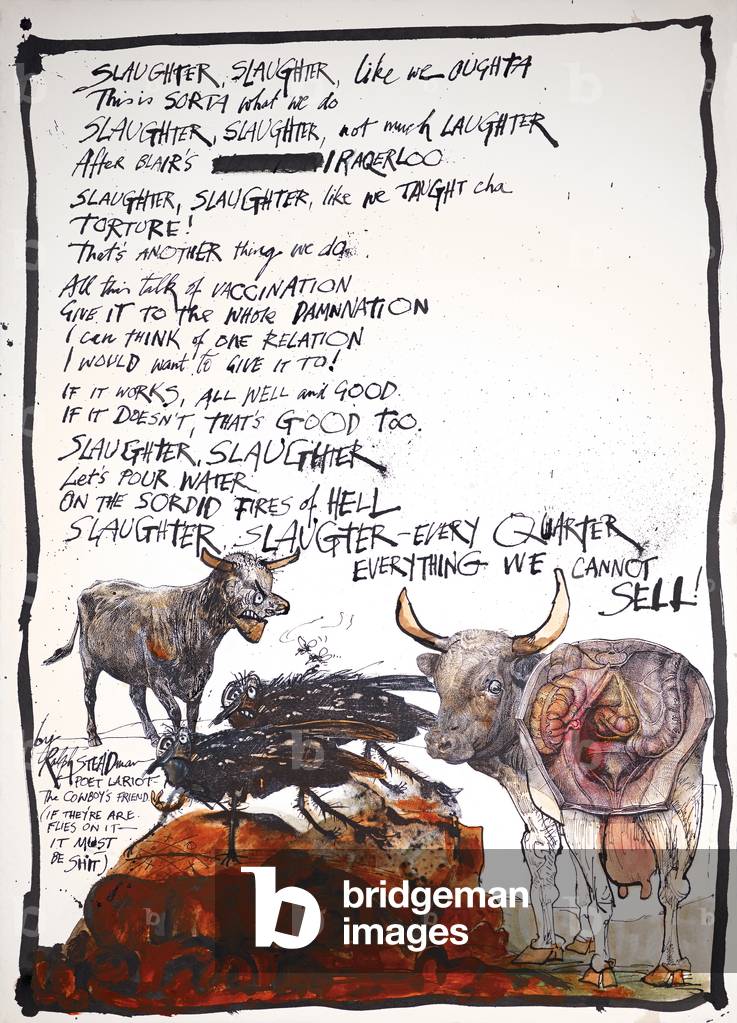 SLAUGHTER, SLAUGHTER, like we OUGHTA
This is SORTA what we do
SLAUGHTER, SLAUGHTER, not much LAUGHTER
After BLAIR'S IRAQERLOO
SLAUGHTER, SLAUGHTER, like we TAUGHT cha
TORTURE!
That's ANOTHER thing we do.
All this talk of VACCINATION
GIVE IT TO the WHOLE DAMNNATION
I can THINK of ONE RELATION
I WOULD want to GIVE IT TO!
IF IT WORKS, ALL WELL and GOOD.
IF IT DOESN'T, THAT'S GOOD TOO.
SLAUGHTER, SLAUGHTER
Let's POUR WATER
ON THE SORDID FIRES of HELL
SLAUGHTER, SLAUGTER - EVERY QUARTER
EVERYTHING WE CANNOT
SELL!
by
Ralph STEADman
POET LARIOT -
The COWBOY'S FRIEND.
(IF THEY'RE ARE.
FLIES ON IT -
IT MUST
BE SHIT)
b bridgeman
images